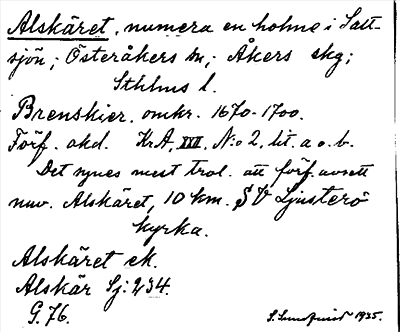 Alskäret, numera en holme i Salt-
sjön; Österåkers sn, Åkers skg;
Sthlms l.
Brenskier. omkr. 1670-1700.
Förf. okd. KrA, XVI, N:o 2, lit. a o. b.
Det synes mest trol. att förf. avsett
nuv. Alskäret, 10 km. SV Ljusterö
kyrka.
Alskäret ek.
Alskär Sj: 234.
G. 76.
S. Lundquist 1935.